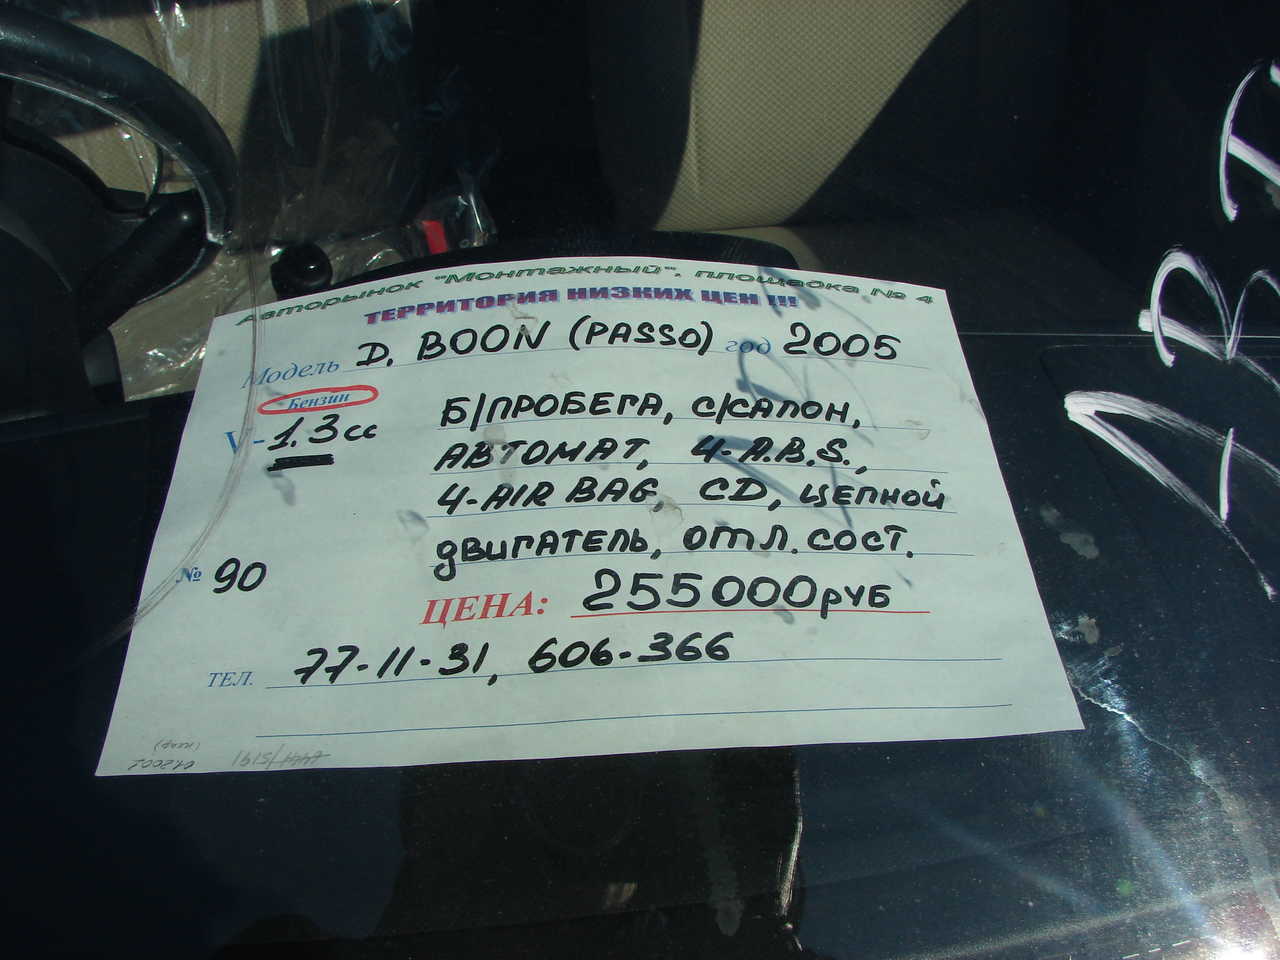 Авторынок "Монтажный", площадка № 4
ТЕРРИТОРИЯ НИЗКИХ ЦЕН !!!
Модель D. BOON (PASSO) год 2005
Бензин
V- 1.3 cc
Б/ПРОБЕГА, С/САЛОН,
АВТОМАТ, 4-A.B.S.,
4-AIR BAG, CD, ЦЕПНОЙ
ДВИГАТЕЛЬ, ОТЛ. СОСТ.
№ 90
ЦЕНА: 255000 руб
ТЕЛ. 77-11-31, 606-366